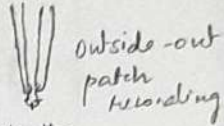 outside-out
patch
recording